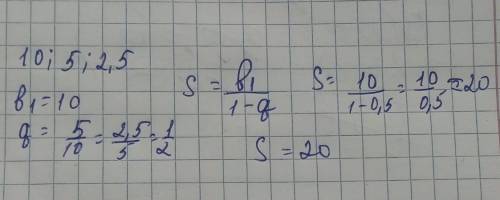 10; 5; 2,5
b₁ = 10
q = 5/10 = 2,5/5 = 1/2
S = b₁/(1-q)
S = 10/(1-0,5) = 10/0,5 = 20
S = 20